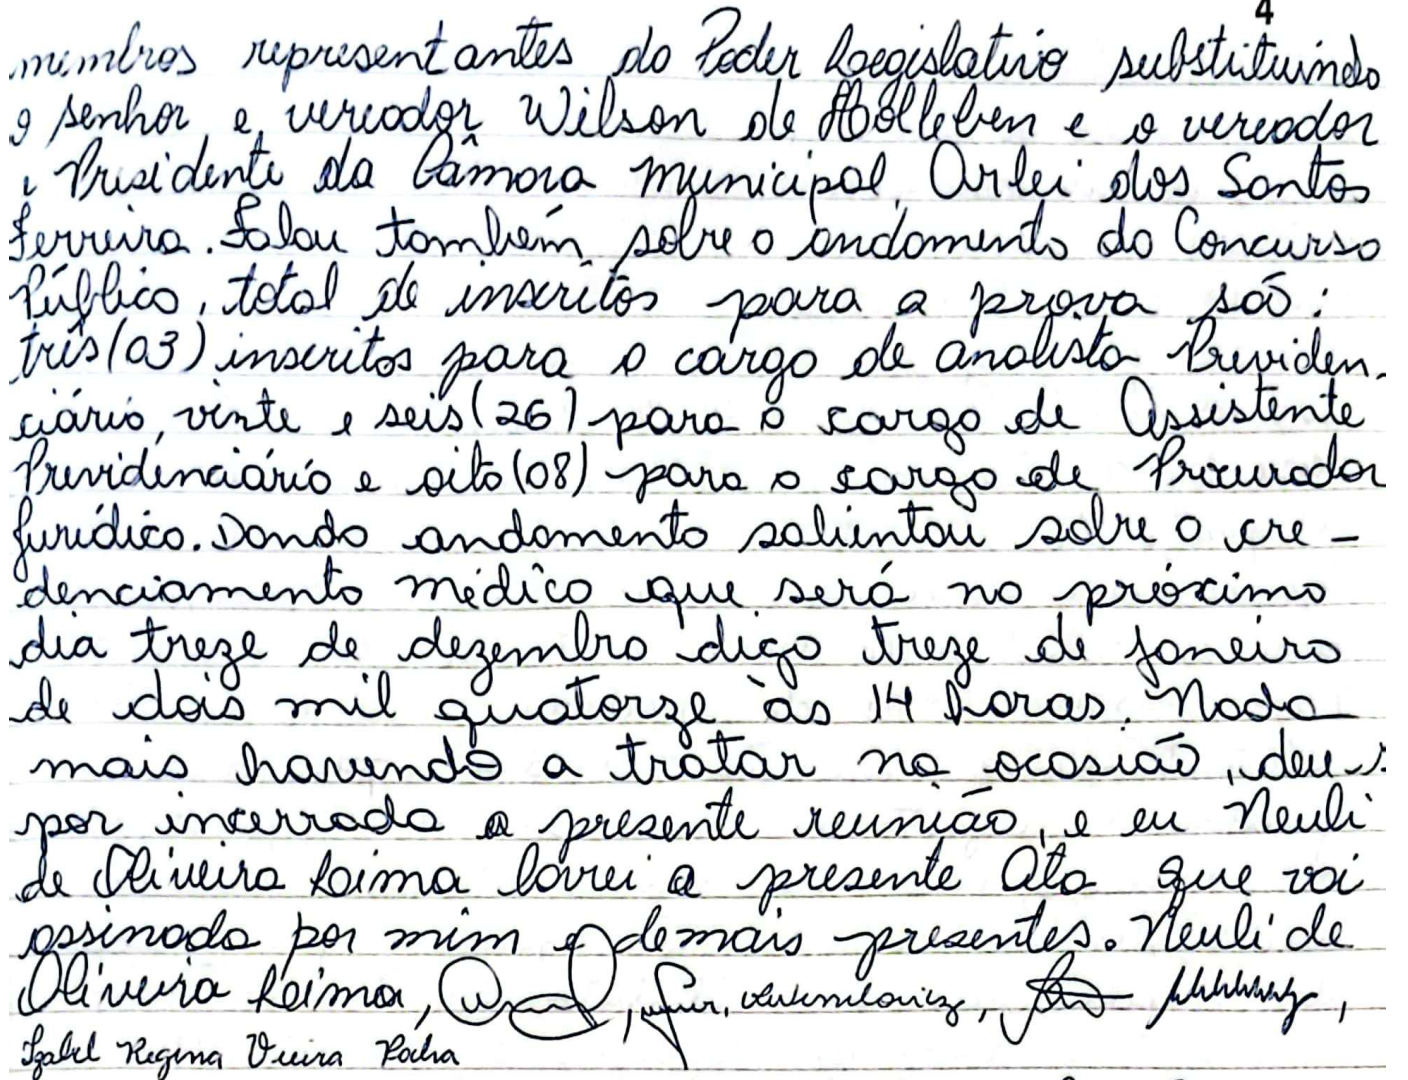 4
membros representantes do Poder Legislativo substituindo
o senhor e vereador Wilson de Holleben e o vereador
e Presidente da Câmara Municipal, Orlei dos Santos
Ferreira. Falou também sobre o andamento do Concurso
Público, total de inscritos para a prova são:
três (03) inscritos para o cargo de analista Previden-
ciário, vinte e seis (26) para o cargo de Assistente
Previdenciário e oito (08) para o cargo de Procurador
Jurídico. Dando andamento salientou sobre o cre-
denciamento médico que será no próximo
dia treze de dezembro digo treze de janeiro
de dois mil quatorze às 14 horas. Nada
mais havendo a tratar na ocasião, deu-s
por incerrada a presente reunião, e eu Neuli
de Oliveira Leima lavrei a presente Ata que vai
assinada por mim e demais presentes. Neuli de
Oliveira Leima,
Izabel Regina Vieira Rocha